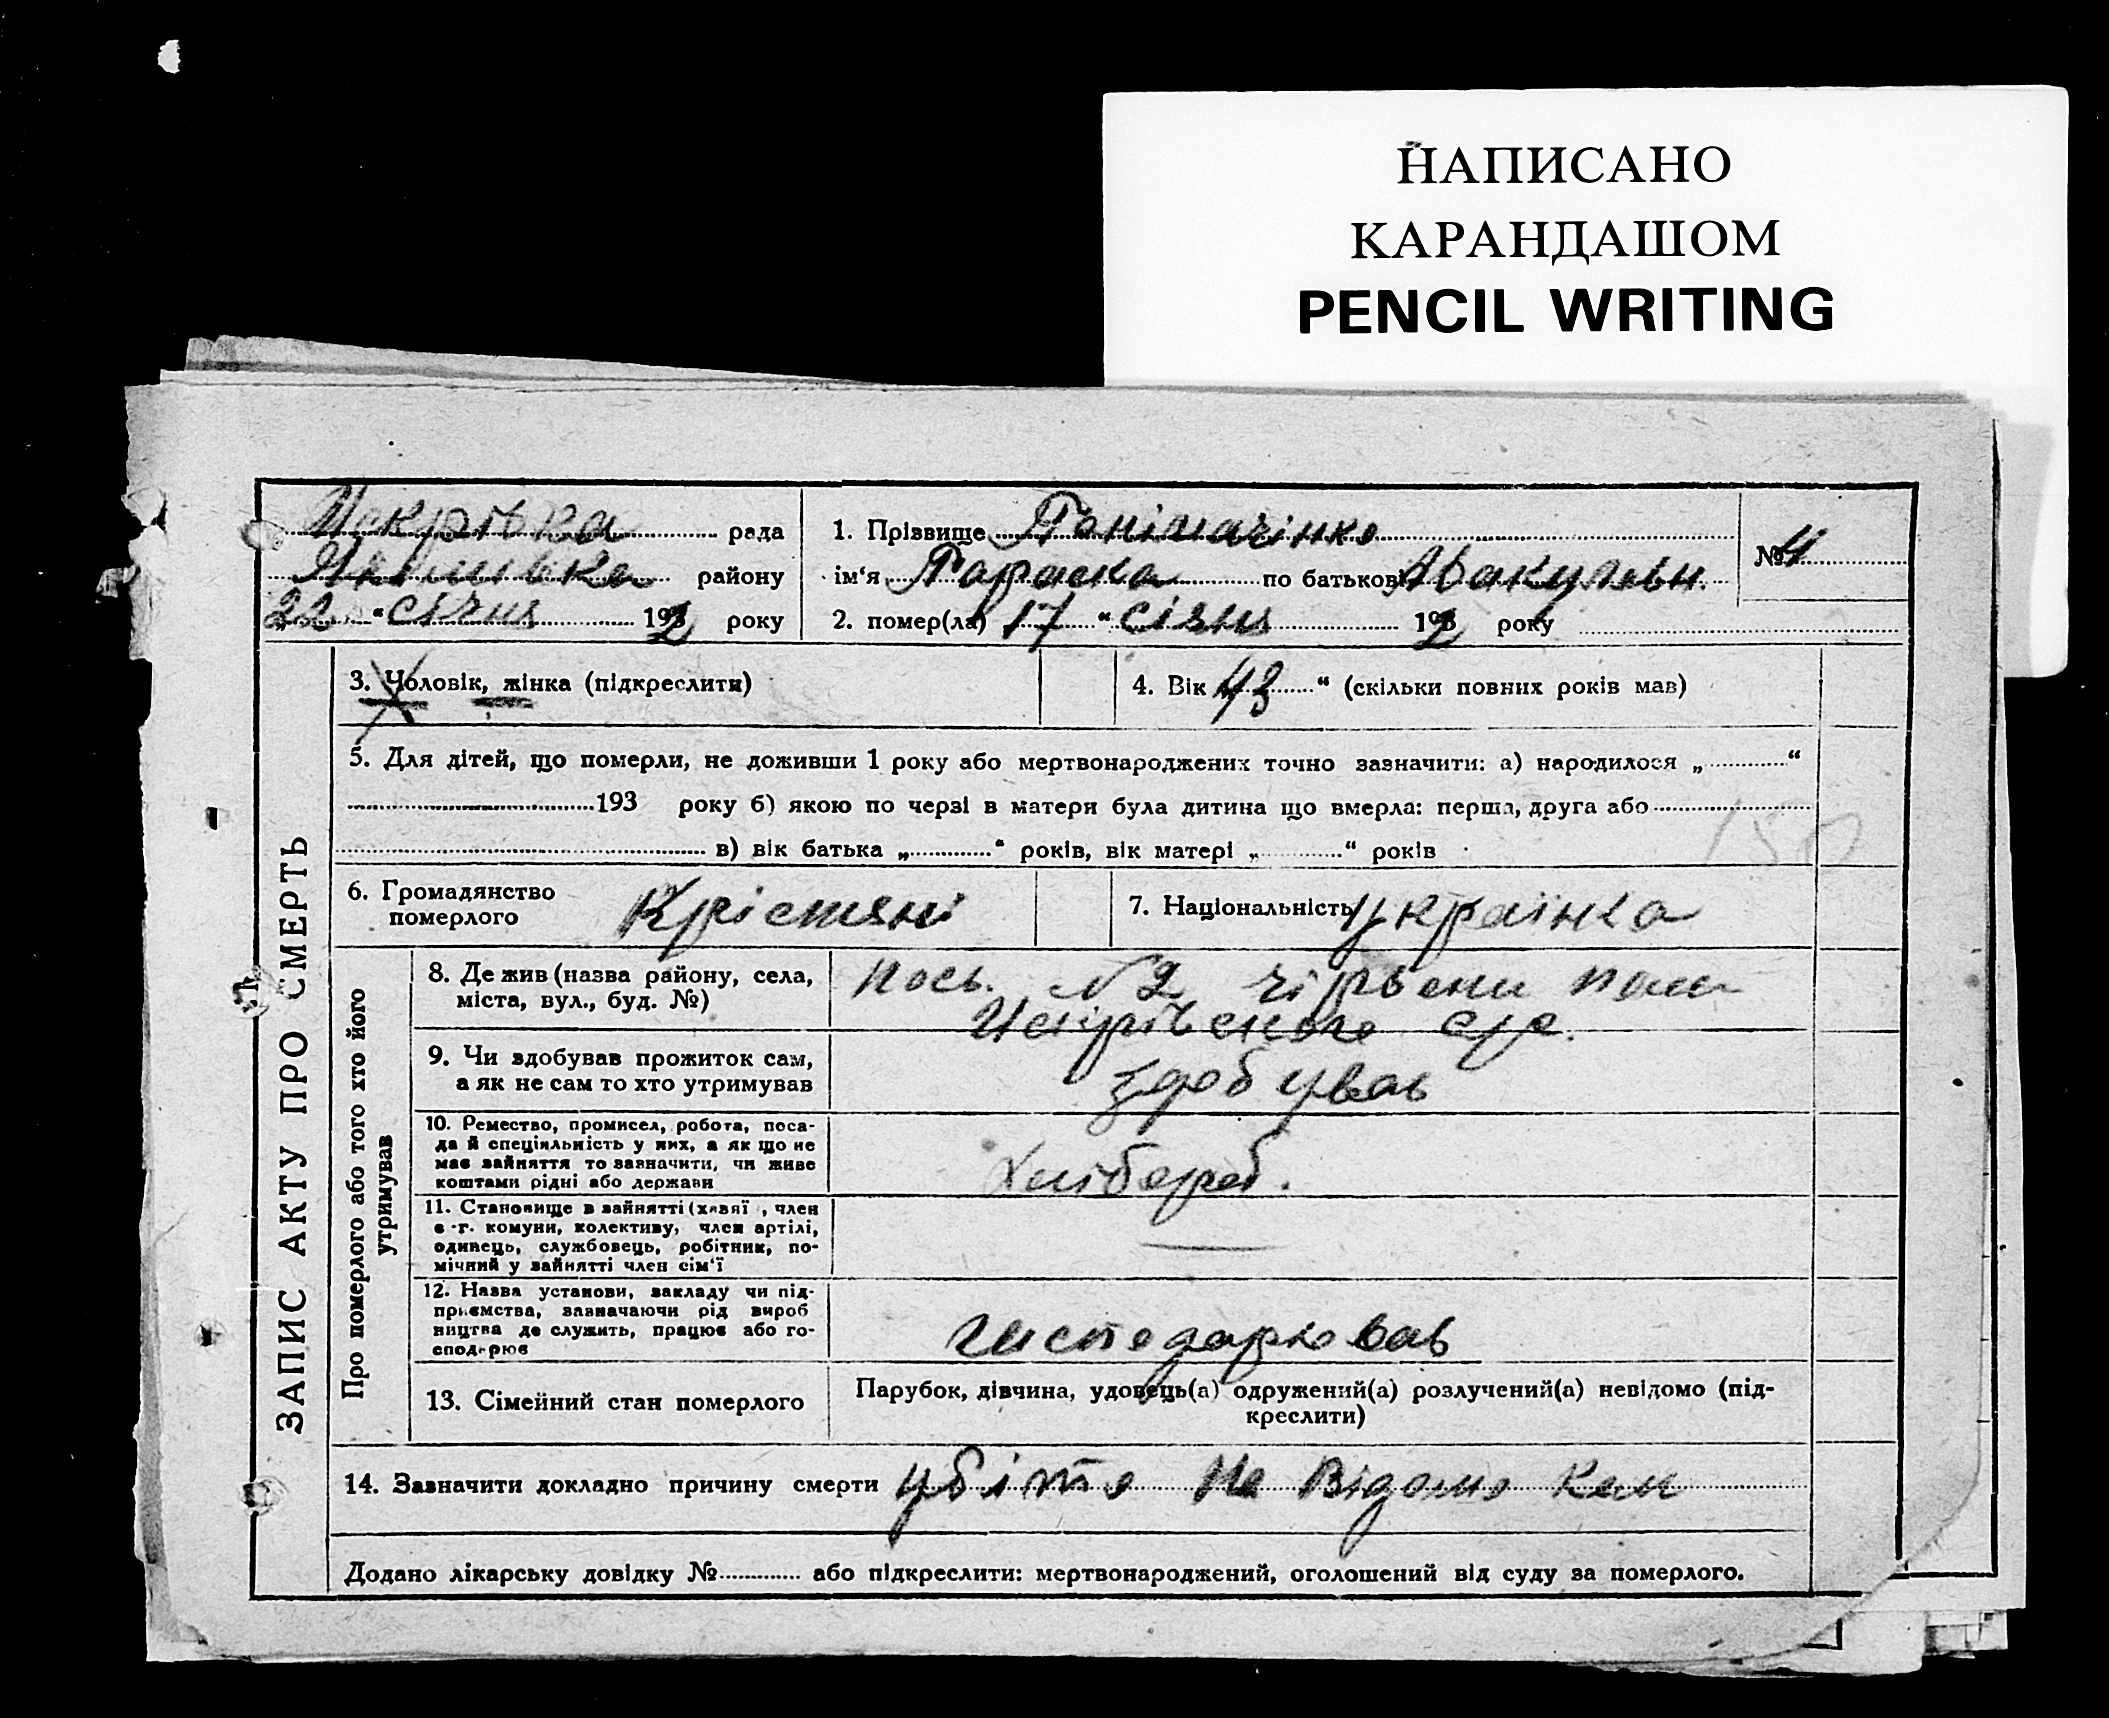 НАПИСАНО
КАРАНДАШОМ
PENCIL WRITING
Искрівка рада
району
22 " січня 1932 року
1. Прізвище
№ 4
ім'я Параска по батькові
2. помер(ла) 17 " січня 1932 року
ЗАПИС АКТУ ПРО СМЕРТЬ
3. Чоловік, жінка (підкреслити)
4. Вік 43 " (скільки повних років мав)
5. Для дітей, що померли, не доживши 1 року або мертвонароджених точно зазначити: а) народилося „ “
193 року б) якою по черзі в матери була дитина що вмерла: перша, друга або
в) вік батька „ “ років, вік матері „ “ років
6. Громадянство
померлого
Крістяні
7. Національність Українка
Про померлого або того хто його
утримував
8. Де жив (назва району, села,
міста, вул., буд. №)
пось. № 2 чірвени поля
Искрівского с/р.
9. Чи здобував прожиток сам,
а як не сам то хто утримував
здобував
10. Ремество, промисел, робота, поса-
да й спеціяльність у них, а як що не
має зайняття то зазначити, чи живе
коштами рідні або держави
хлібороб.
11. Становище в зайнятті (хазяї , член
с -г. комуни, колективу, член артілі,
одинець, службовець, робітник, по-
мічний у зайнятті член сім'ї
12. Назва установи, закладу чи під-
приємства, зазначаючи рід вироб
ництва де служить, працює або го-
сподарює
13. Сімейний стан померлого
Парубок, дівчина, удовець(а) одружений(а) розлучений(а) невідомо (під-
креслити)
14. Зазначити докладно причину смерти убіто не відомо кем
Додано лікарську довідку № або підкреслити: мертвонароджений, оголошений від суду за померлого.